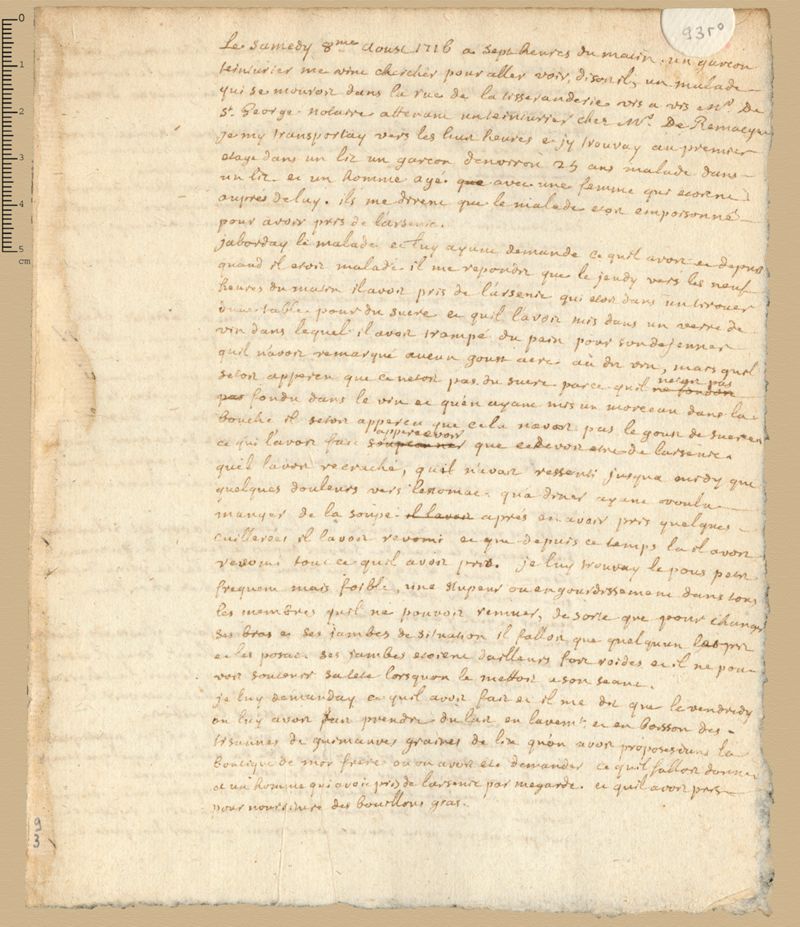 935ro
Le Samedy 8me Aoust 1716 a sept heures du matin, un garcon
teinturier me vint chercher pour aller voir, disoit il, un malade
qui se mouroit dans la rue de la tisseranderie vis a vis Mr. De
St. George notaire attenant un teinturier chez Mr. De Remacque
je my transportay vers les huit heures et jy trouvay au premier
etage dans un lit un garcon denviron 25 ans malade dans
un lit et un homme agé que avec une femme qui etoient
auprés de luy. ils me dirent que le malade etoit empoisonné
pour avoir pris de l'arsenic.
jaborday le malade et luy ayant demande ce quil avoit et depuis
quand il etoit malade il me repondit que le jeudy vers les neuf
heures du matin il avoit pris de l'arsenic qui etoit dans un tirouer
d'une table pour du sucre et quil l'avoit mis dans un verre de
vin dans lequel il avoit trampé du pain pour son dejeuner
quil n'avoit remarqué aucun goust acre au dit vin, mais quil
setoit apperceu que ce netoit pas du sucre parce quil netoit pas
pas fondu dans le vin et quen ayant mis un morceau dans la
bouche il setoit apperceu que cela navoit pas le goust de sucre
ce qui l'avoit fait soupconner appercevoir que ce devoit etre de larsenic.
quil lavoit recraché, quil n'avoit ressenti jusqua midy que
quelques douleurs vers lestomac. qua diner ayant voulu
manger de la soupe il lavoit aprés en avoir pris quelques
cuillerées il lavoit revomi et que depuis ce temps la il avoit
revomi tout ce quil avoit pris. je luy trouvay le pous petit
frequent mais foible, une stupeur ou engourdissement dans tous
les membres quil ne pouvoit remuer, de sorte que pour changer
ses bras et ses jambes de situation il falloit que quelquun les prit
et les posat. ses jambes etoient dailleurs fort roides et il ne pou-
voit soutenir sa tete lorsquon le mettoit a son seant.
je luy demanday ce quil avoit fait et il me dit que le vendredy
on luy avoit fait prendre du lait en lavemt. et en boisson des
tisannes de guimauves graines de lin quon avoit proposé dans la
boutique de mon frere ou on avoit eté demander ce quil falloit donner
a un homme qui avoit pris de l'arsenic par megarde. et quil avoit pris
pour nourriture des bouillons gras.
9
3
0
1
2
3
4
5
cm